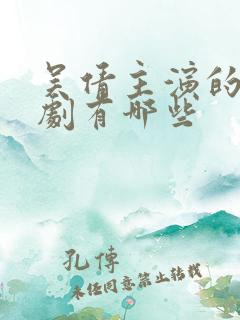 吴倩主演的
劇有哪些
孔傳
未经同意禁止转载